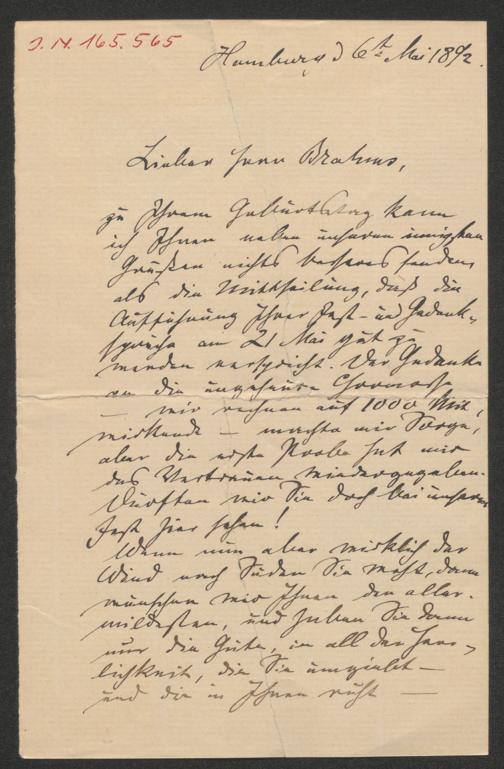 J.N. 165.565
Hamburg d 6ten Mai 1892.
Lieber Herr Brahms,
zu Ihrem Geburtstag kann
ich Ihnen neben unseren innigsten
Grüßen nichts besseres senden
als die Mittheilung, daß die
Aufführung Ihrer Fest- und Gedenk-
sprüche am 21 Mai gut zu
werden verspricht. Der Gedanke
an die ungeheure Chormasse
— wir rechnen auf 1000 Mit-
wirkende — machte mir Sorge,
aber die erste Probe hat mir
das Vertrauen wiedergegeben.
Dürften wir Sie doch bei unserm
Fest hier sehen!
Wenn nun aber wirklich der
Wind nach Süden Sie weht, dann
wünschen wir Ihnen den aller-
mildesten, und haben Sie dann
nur die Güte, in all der Herr-
lichkeit, die Sie umgiebt —
und die in Ihnen ruht —